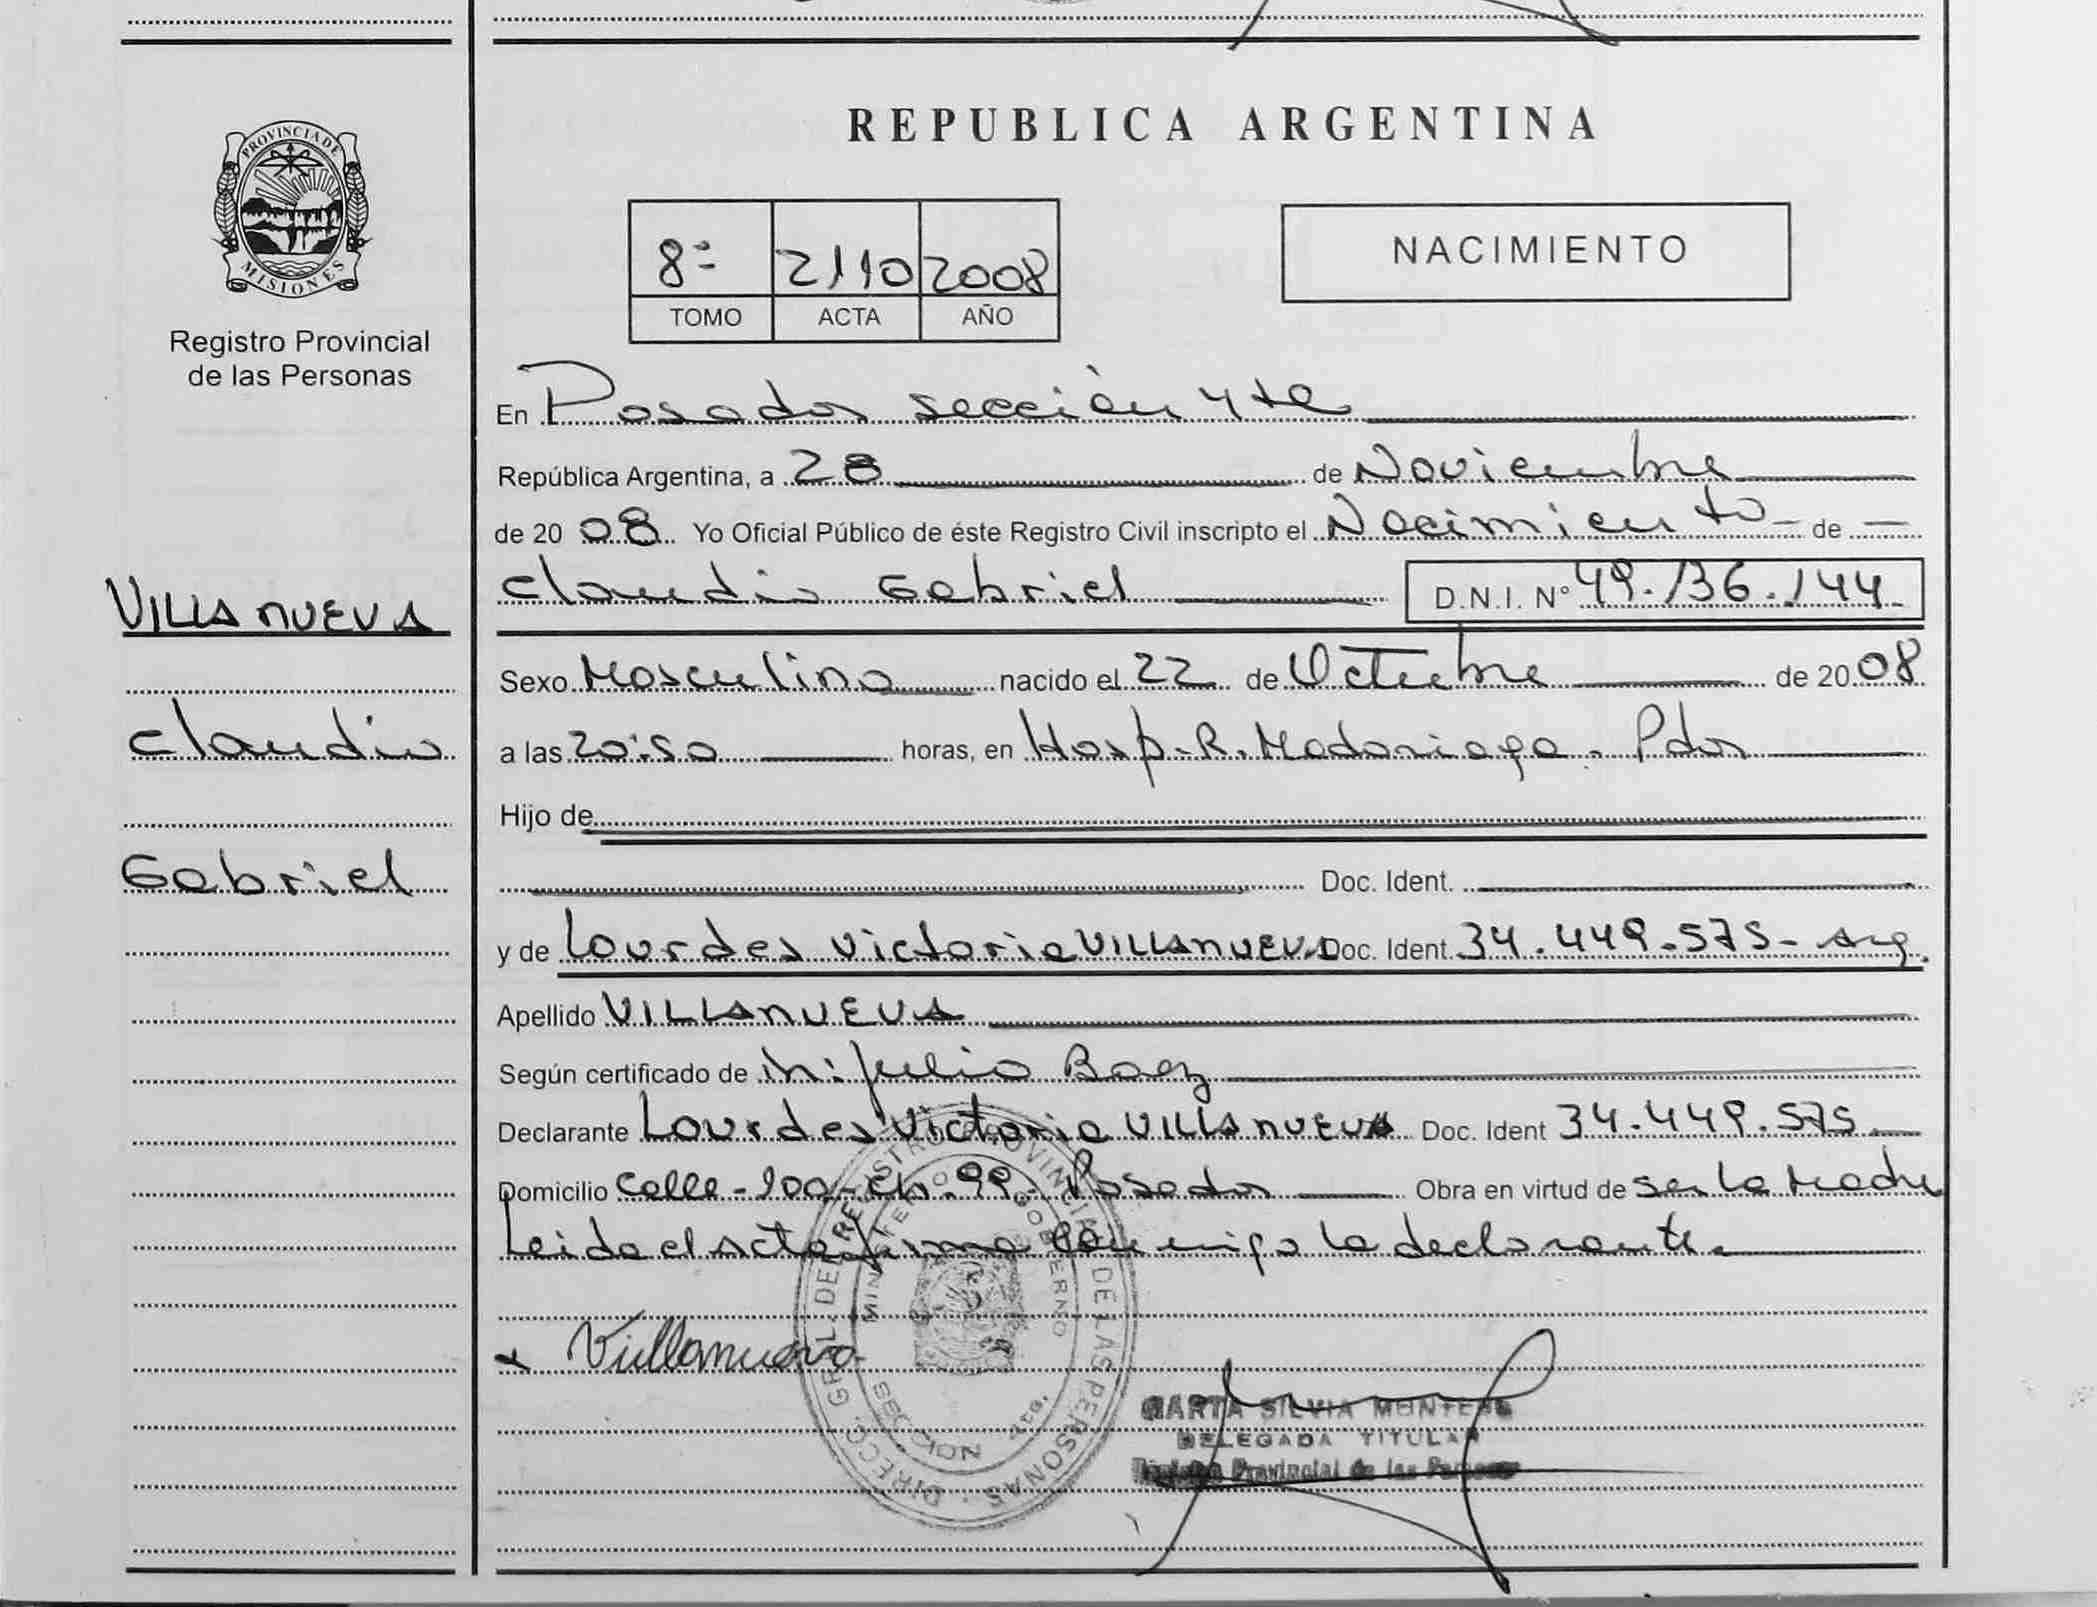 PROVINCIA DE
MISIONES
Registro Provincial
de las Personas
VILLANUEVA
Claudio
Gabriel
REPUBLICA ARGENTINA
8º 2110 2008
TOMO ACTA AÑO
NACIMIENTO
En Posadas sección 4ta
República Argentina, a 28 de Noviembre
de 20 08 Yo Oficial Público de éste Registro Civil inscripto el Nacimiento - de -
Claudio Gabriel D.N.I. Nº 49.136.144
Sexo Masculino nacido el 22 de Octubre de 20 08
a las 20:50 horas, en Hosp. R. Madariaga. Pdas
Hijo de
Doc. Ident.
y de Lourdes Victoria VILLANUEVA Doc. Ident. 34.449.575- Arg.
Apellido VILLANUEVA
Según certificado de Julio Baez
Declarante Lourdes Victoria VILLANUEVA Doc. Ident 34.449.575
Domicilio Calle - 100 - Ch. 99 - Posadas Obra en virtud de ser la madre
Leida el acta firma conmigo la declarante.
x Villanueva
DIRECC. GRAL. DEL REGISTRO PROVINCIAL DE LAS PERSONAS
MINISTERIO GOBIERNO
SECCION 4ta.
MARTA SILVIA MONTERO
DELEGADA TITULAR
Registro Provincial de las Personas